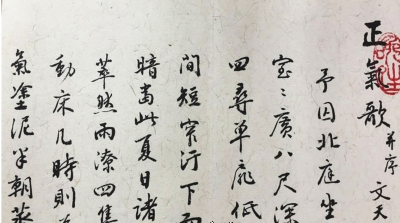 正氣歌 并序 文天
予囚北庭坐
室〻廣八尺深
四尋單扉低
間短窄汙下而
暗當此夏日諸
萃然雨潦四集
動床几時則
氣塗泥半朝蒸